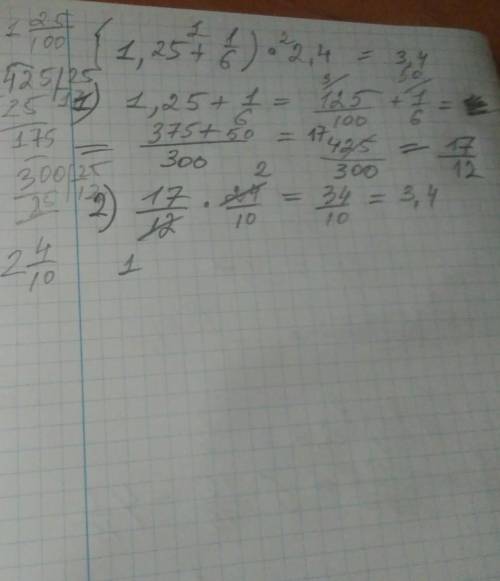 1 25/100
(1,25 + 1/6) · 2,4 = 3,4
425 | 25
25 | 17
175
300 | 25
25 | 12
1) 1,25 + 1/6 = 125/100 + 1/6 =
= 375+50/300 = 425/300 = 17/12
2) 17/12 · 24/10 = 34/10 = 3,4
2 4/10
1